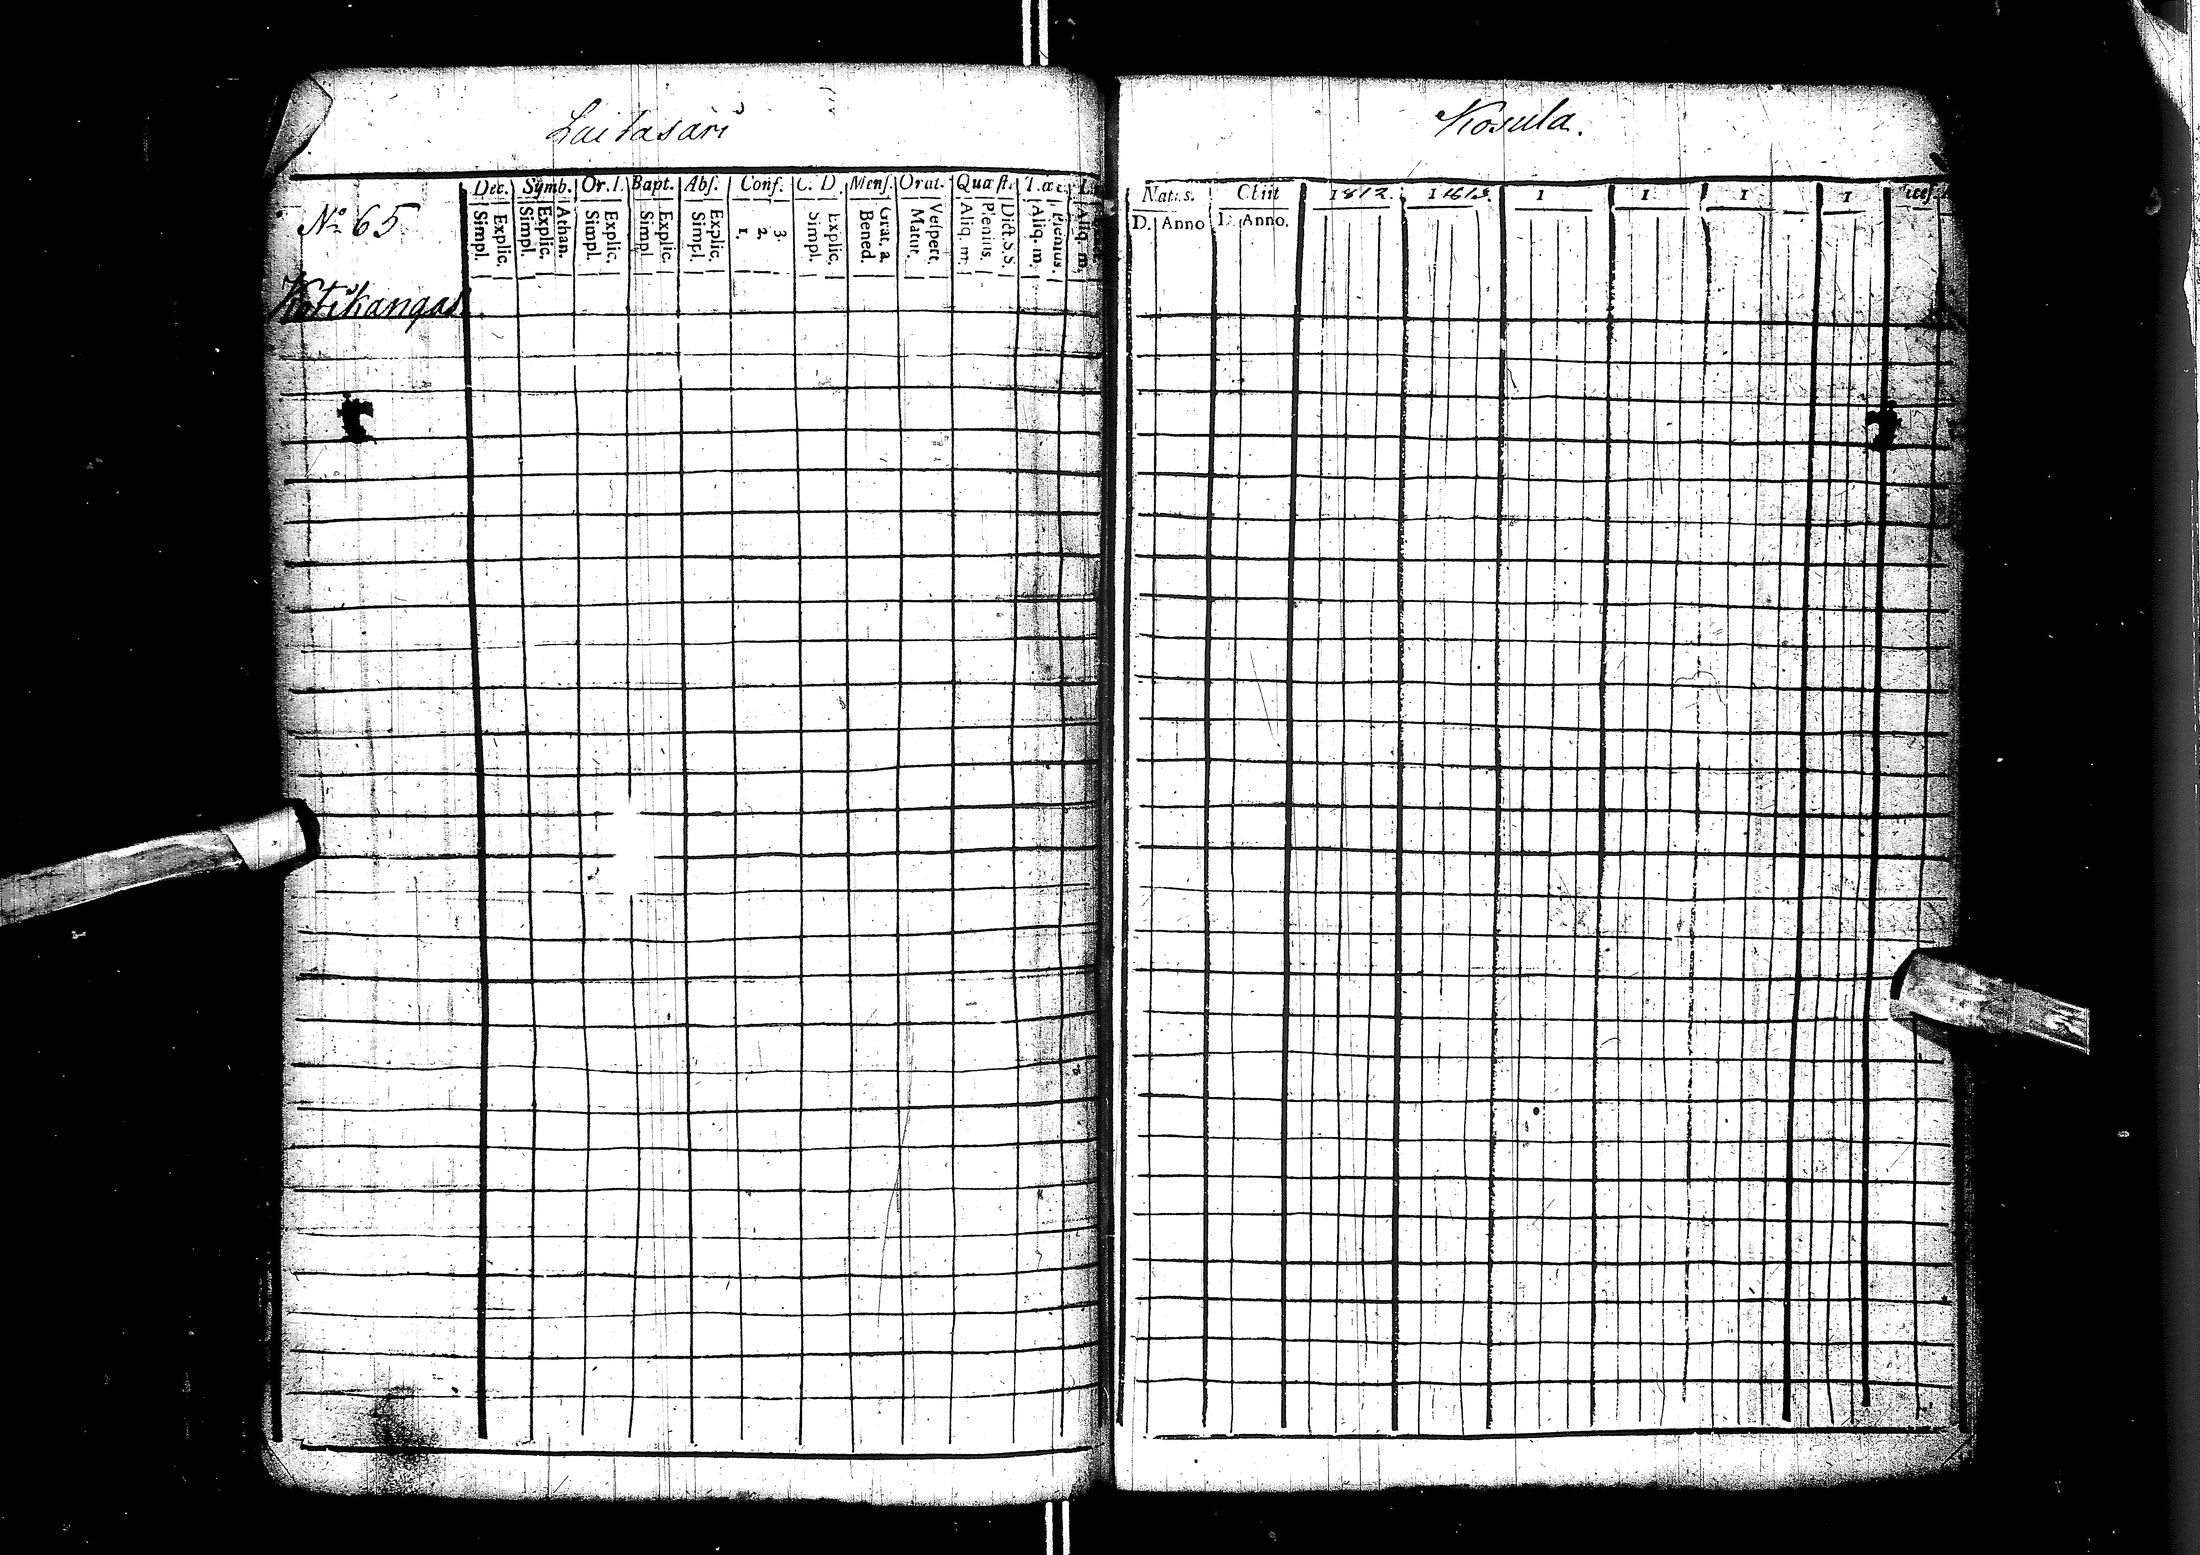 Laitasari
Dec. Symb. Or. D. Bapt. Abs. Conf. C. D. Mens. Orat. Quæst. Tac.
Nº 65
Simpl. Explic. Simpl. Explic. Athan. Simpl. Explic. Simpl. Explic. Simpl. Explic. 1. 2. 3. Simpl. Explic. Bened. Grat. a. Matut. Vespert. Aliq. m. Plenius. Dict. S.S. Aliq. m. Plenius. Aliq. m.
Kotikangas
Kosula.
Nat. s. Obiit 1812. 1813. 1 1 1 1
D. Anno D. Anno.